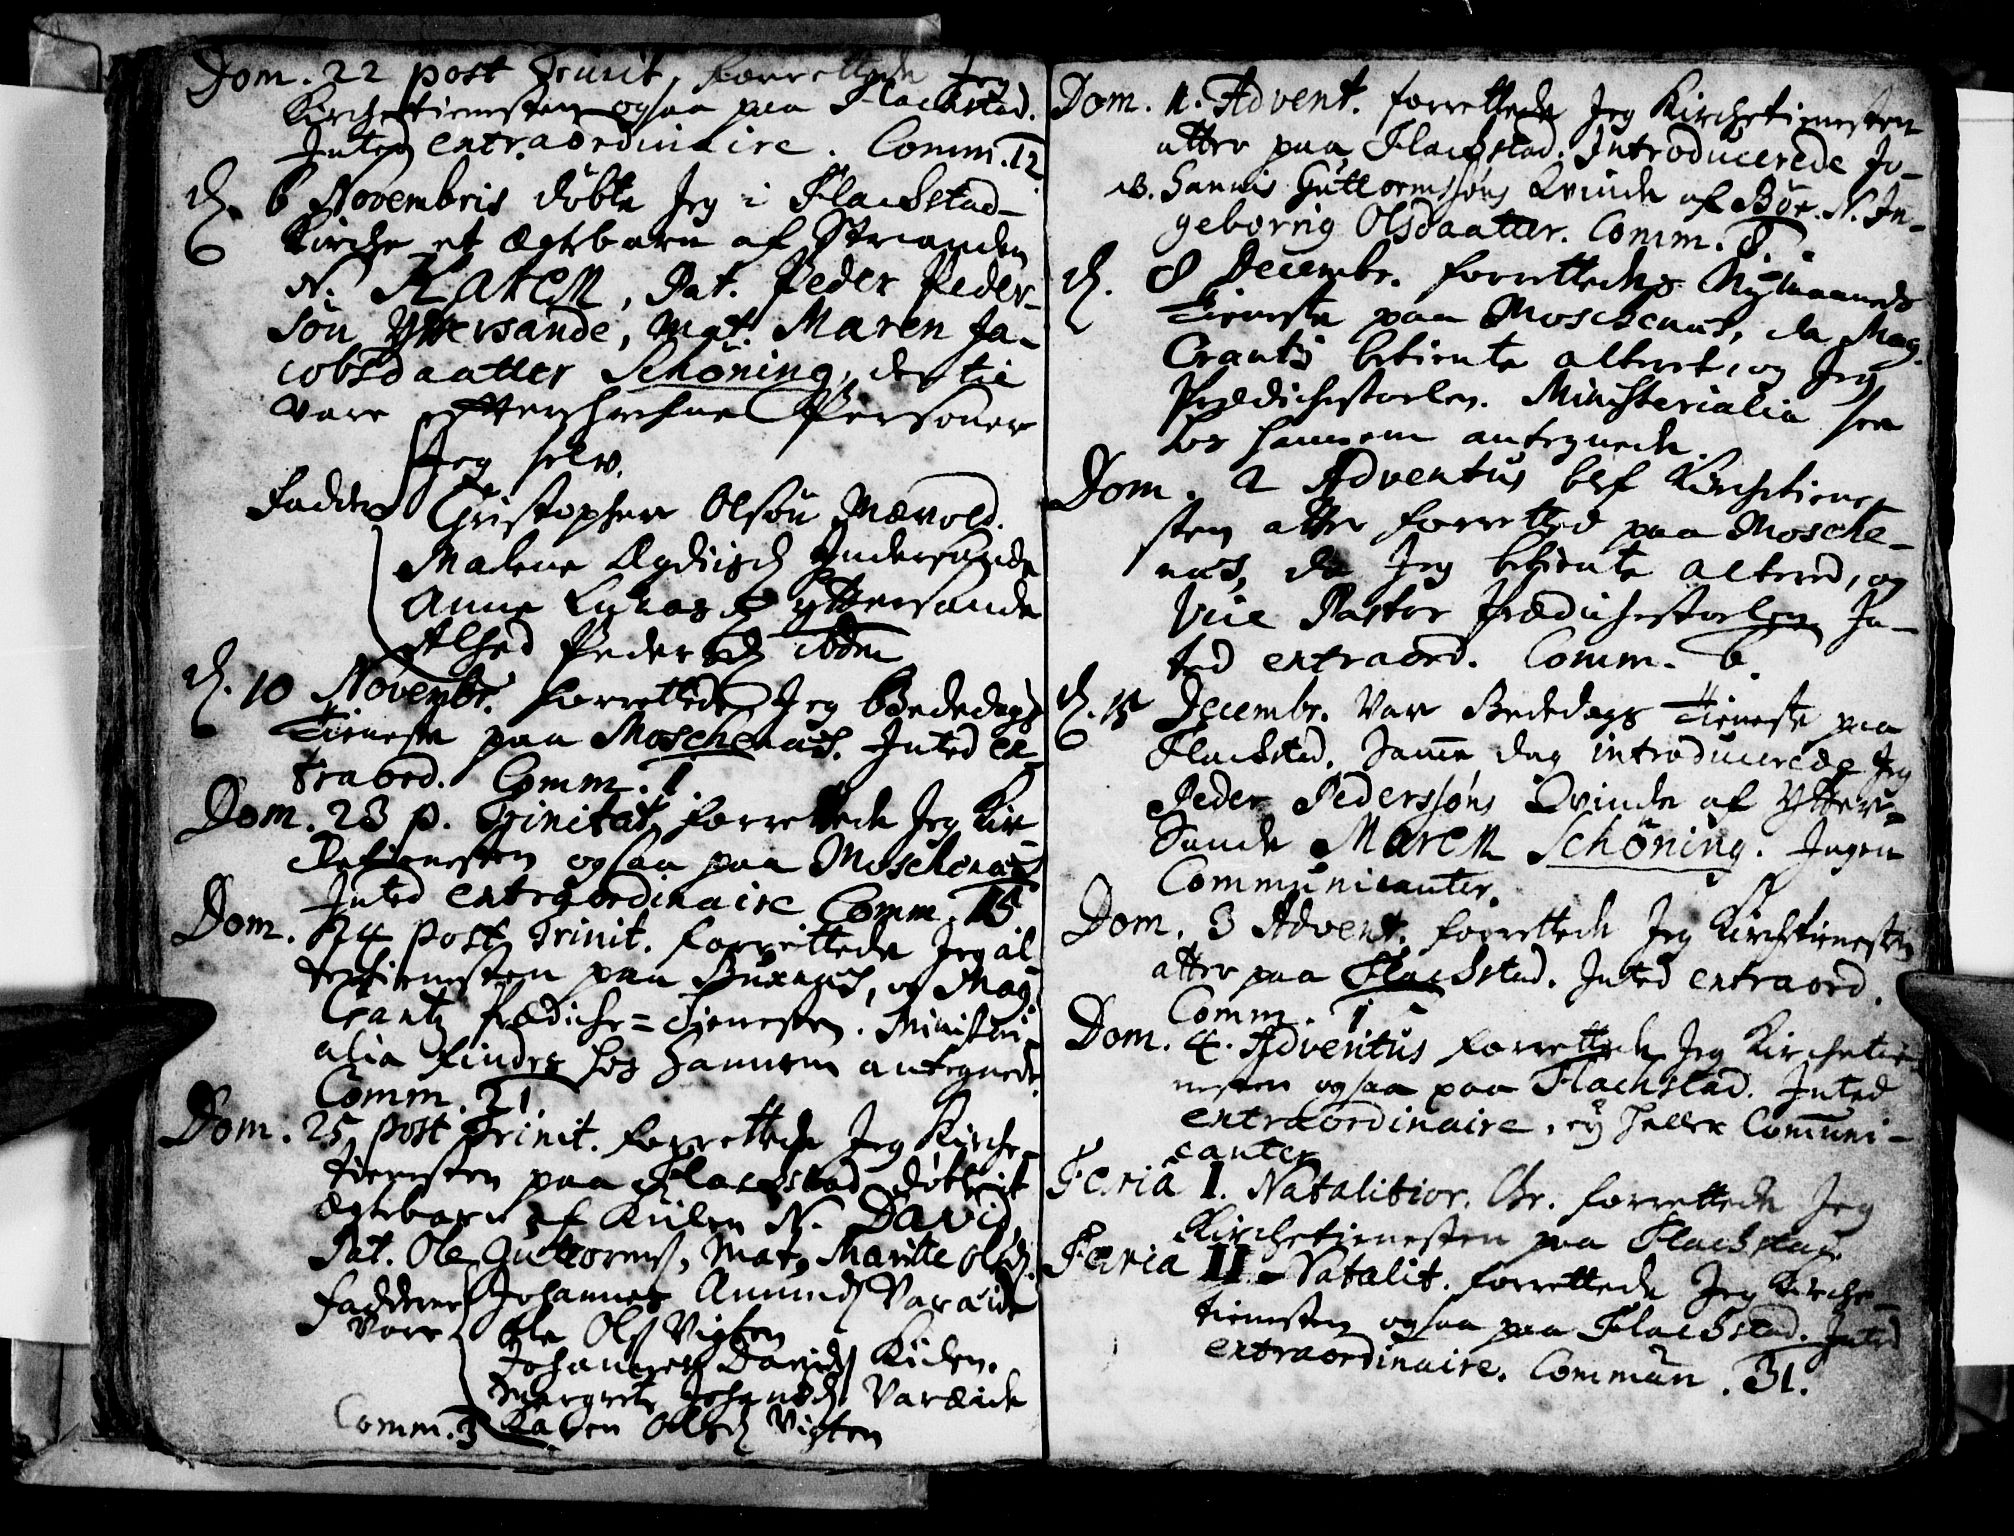 Dom. 22 post Trinit. forrettede Jeg
Kirchetienesten ogsaa paa Flackstad.
Inted extraordinaire. Comm. 12
D. 6 Novembris döbte Jeg i Flackstad-
Kirche et Ægtebarn af Stranden
N. Karen, Pat. Peder Peder-
sön Yttersande, Mat. Maren Ja-
cobsdaatter Schöning, dertil
vare efterschrefne Personer
Jeg selv.
Faddere Christopher Olsön Mævold.
Malene Indersande
Anne Yttersande
Alhed Pedersd ibdm
D. 10 Novembr. forrettede Jeg Bededags
Tieneste paa Moschenæs. Inted ex-
traord. Comm. 1.
Dom. 23 p. Trinitat. forrettede Jeg Kir-
chetienesten ogsaa paa Moschenæs
Inted extraordinaire Comm. 15
Dom. 24 post Trinit. forrettede Jeg al-
tertienesten paa Buxnæs, og Mag.
Crantz Prædiche=Tienesten. Ministeri-
alia findes hos hannem antegnede
Comm. 21.
Dom. 25 post Trinit. forrettede Jeg Kirche-
tienesten paa Flackstad döbte it
Ægtebarn af Kiilen N. David,
Pat. Ole Guttorms, Mat. Maritte Olsd.
Faddere Johannes Amunds Varæide
vare Ole Ols Vigten
Johannes Davids Kiilen.
Margrete Johansd. Varæide
Comm. 3 Karen Olsd Vigten
Dom. 1. Advent. forrettede Jeg Kirchetienesten
atter paa Flackstad. Introducerede Jo-
NB. hannis Guttormssöns Kvinde af Böe. N. In-
geborrig Olsdaatter. Comm. 8.
D. 8 Decembr. forrettedes Nymaaneds
Tieneste paa Moschenæs, da Mag.
Crantz betiente alteret, og Jeg
Prædichestoelen. Ministerialia see
hos hannem antegnede.
Dom. 2 Adventus blef Kirchetiene-
sten atter forretted paa Mosche-
næs, da Jeg betiente altered, og
Vice Pastor Prædichestoelen In-
ted extraord. Comm. 6.
D. 15 Decembr. Var Bededags Tieneste paa
Flackstad. Samme dag introducerede Jeg
Peder Pederssöns Qvinde af Ytter-
Sande Maren Schöning. Ingen
Communicanter.
Dom. 3 Advent. forrettede Jeg Kirchetienesten
atter paa Flackstad. Inted extraord.
Comm. 1
Dom. 4. Adventus forrettede Jeg Kirchetie-
nesten ogsaa paa Flachstad. Inted
extraordinaire, ey heller Communi-
canter
Feria I. Natalitior. Chr. forrettede Jeg
Kirchetienesten paa Flackstad
Feria II. Natalit. forrettede Jeg Kirche-
tienesten ogsaa paa Flackstad. Inted
extraordinaire. Commun. 31.